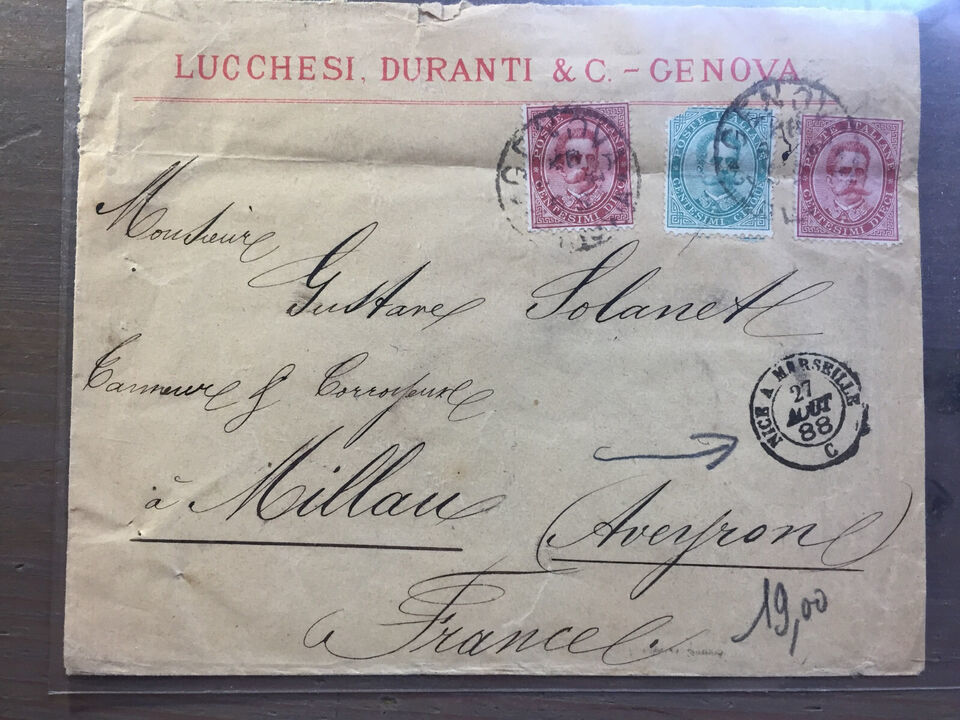 LUCCHESI, DURANTI & C. – GENOVA
POSTE ITALIANE
CENTESIMI DIECI
POSTE ITALIANE
CENTESIMI CINQUE
POSTE ITALIANE
CENTESIMI DIECI
GENOVA
GENOVA
Monsieur
Gustave Solanet
Tanneur & Corroyeur
NICE A MARSEILLE
27
AOUT
88
C
à Millau (Aveyron)
France
19,00